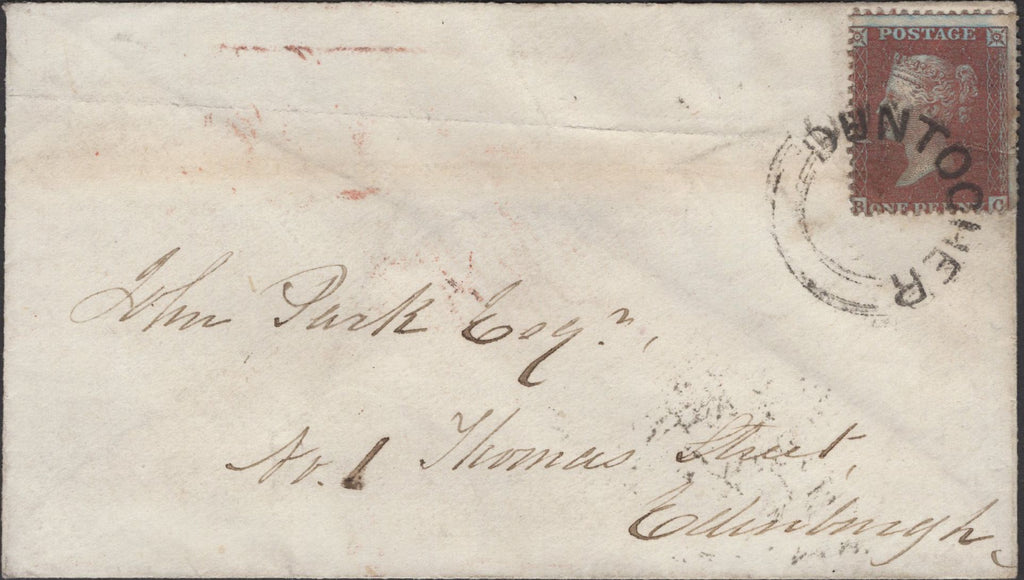 POSTAGE
ONE PENNY
C
DUNTOCHER
John Park Esqr.,
No. 1 Thomas Street,
Edinburgh,